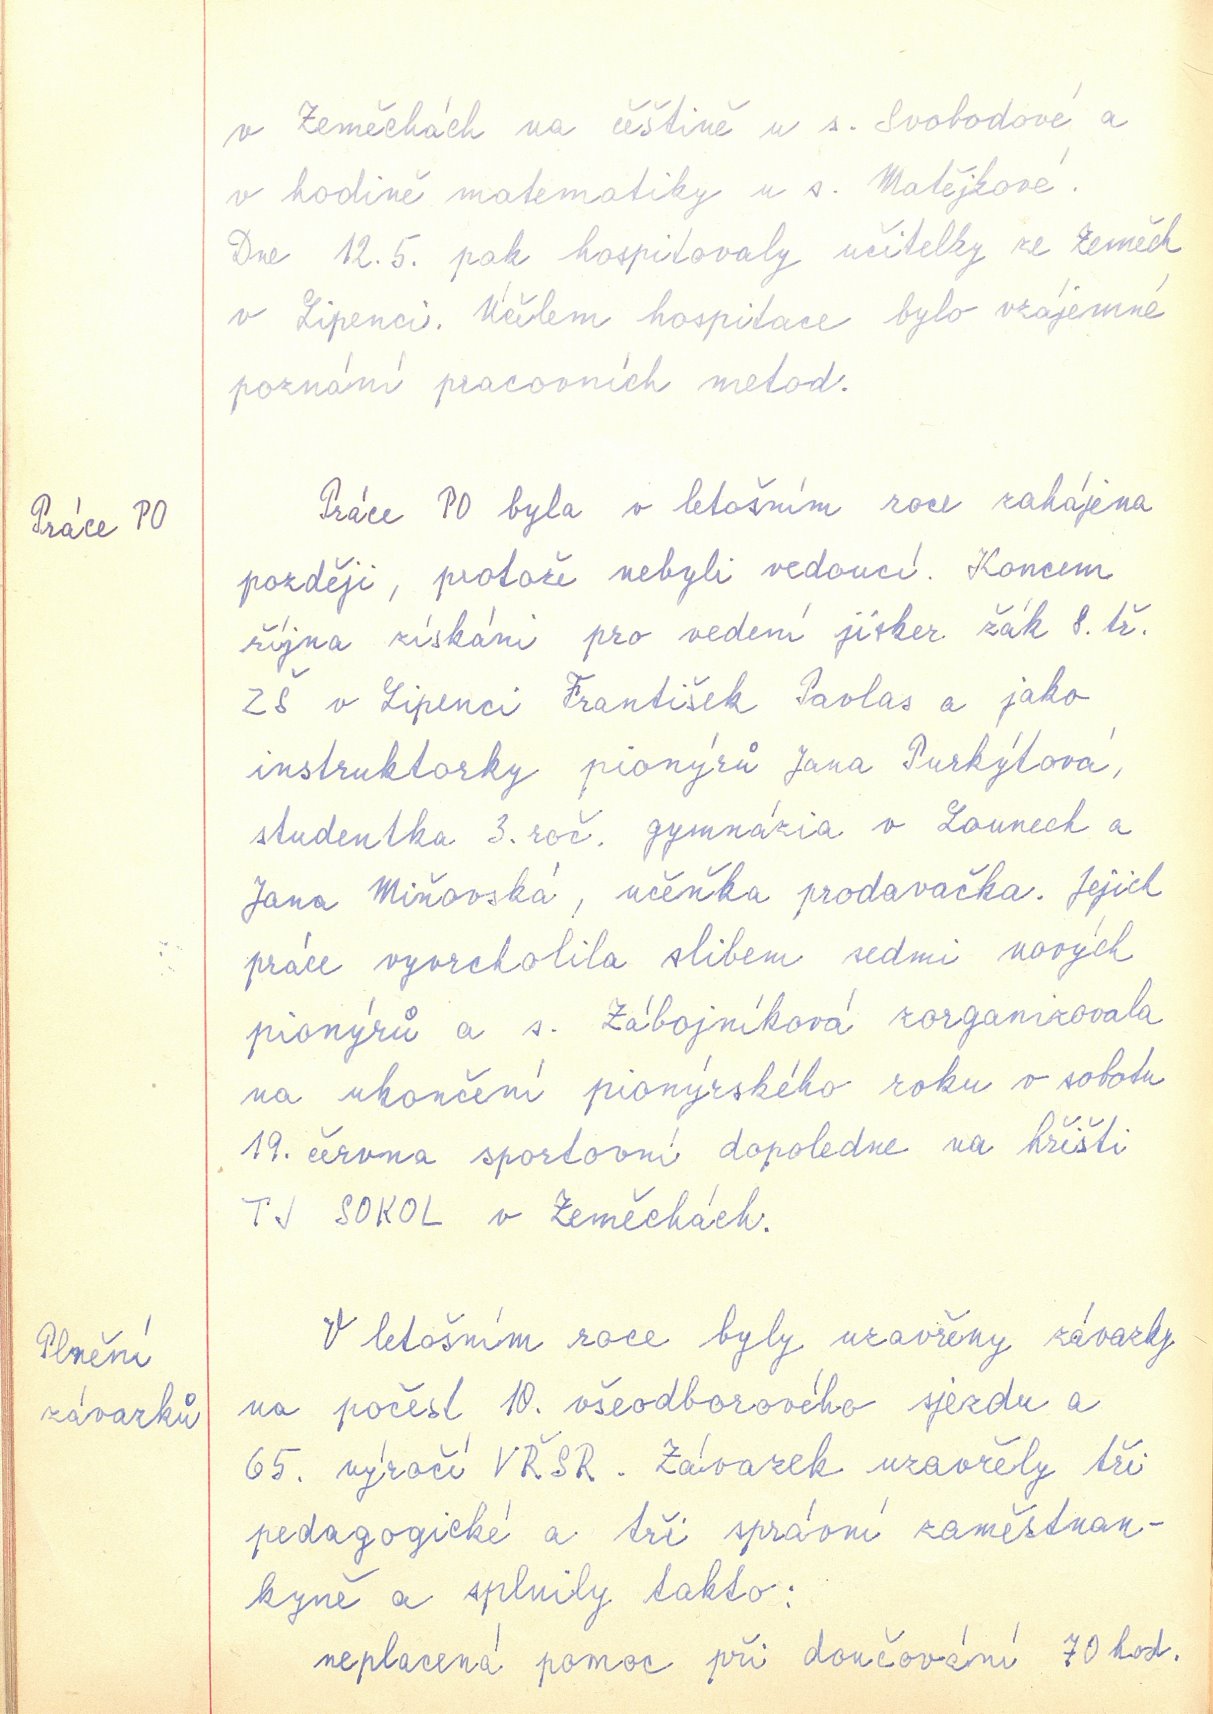 v Zeměchách na češtině u s. Svobodové a
v hodině matematiky u s. Matějkové.
Dne 12. 5. pak hospitovaly učitelky ze Zeměch
v Lipenci. Účelem hospitace bylo vzájemné
poznání pracovních metod.
Práce PO
Práce PO byla v letošním roce zahájena
později, protože nebyli vedoucí. Koncem
října získáni pro vedení jisker žák 8. tř.
ZŠ v Lipenci František Pavlas a jako
instruktorky pionýrů Jana Purkýtová,
studentka 3. roč. gymnázia v Lounech a
Jana Miňovská, učeňka prodavačka. Jejich
práce vyvrcholila slibem sedmi nových
pionýrů a s. Zábojníková zorganizovala
na ukončení pionýrského roku v sobotu
19. června sportovní dopoledne na hřišti
TJ SOKOL v Zeměchách.
Plnění
závazků
V letošním roce byly uzavřeny závazky
na počest 10. všeodborového sjezdu a
65. výročí VŘSR. Závazek uzavřely tři
pedagogické a tři správní zaměstnan-
kyně a splnily takto:
neplacená pomoc při doučování 70 hod.